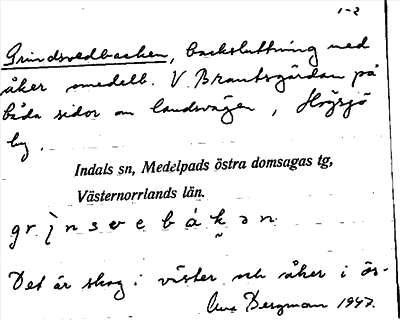 1-2
Grindsvedbacken, backsluttning med
åker omedelb. V Brantsgårdan på
båda sidor om landsvägen, Högsjö
by.
Indals sn, Medelpads östra domsagas tg,
Västernorrlands län.
Det är skog i väster och åker i ös-
Bergman 1947.